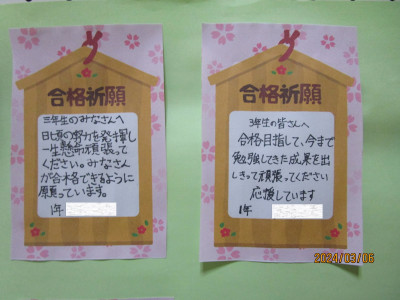 合格祈願
三年生のみなさんへ
日頃の努力を発揮し
一生懸命頑張って
ください。みなさん
が合格できるように
願っています。
1年
合格祈願
3年生の皆さんへ
合格目指して、今まで
勉強してきた成果を出
しきって頑張ってください
応援しています
1年
2024/03/06